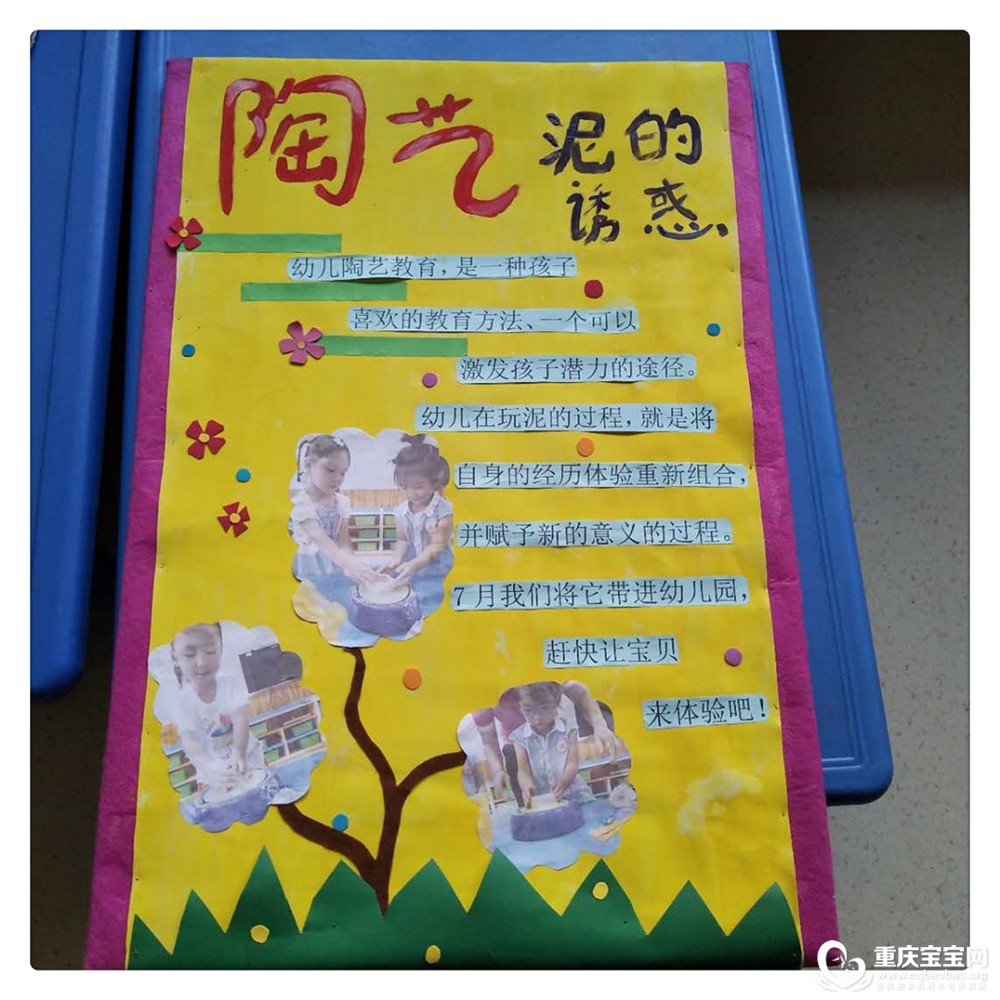 陶艺 泥的
诱惑
幼儿陶艺教育，是一种孩子
喜欢的教育方法、一个可以
激发孩子潜力的途径。
幼儿在玩泥的过程，就是将
自身的经历体验重新组合，
并赋予新的意义的过程。
7月我们将它带进幼儿园，
赶快让宝贝
来体验吧！
重庆宝宝网
www.cqbaobao.org